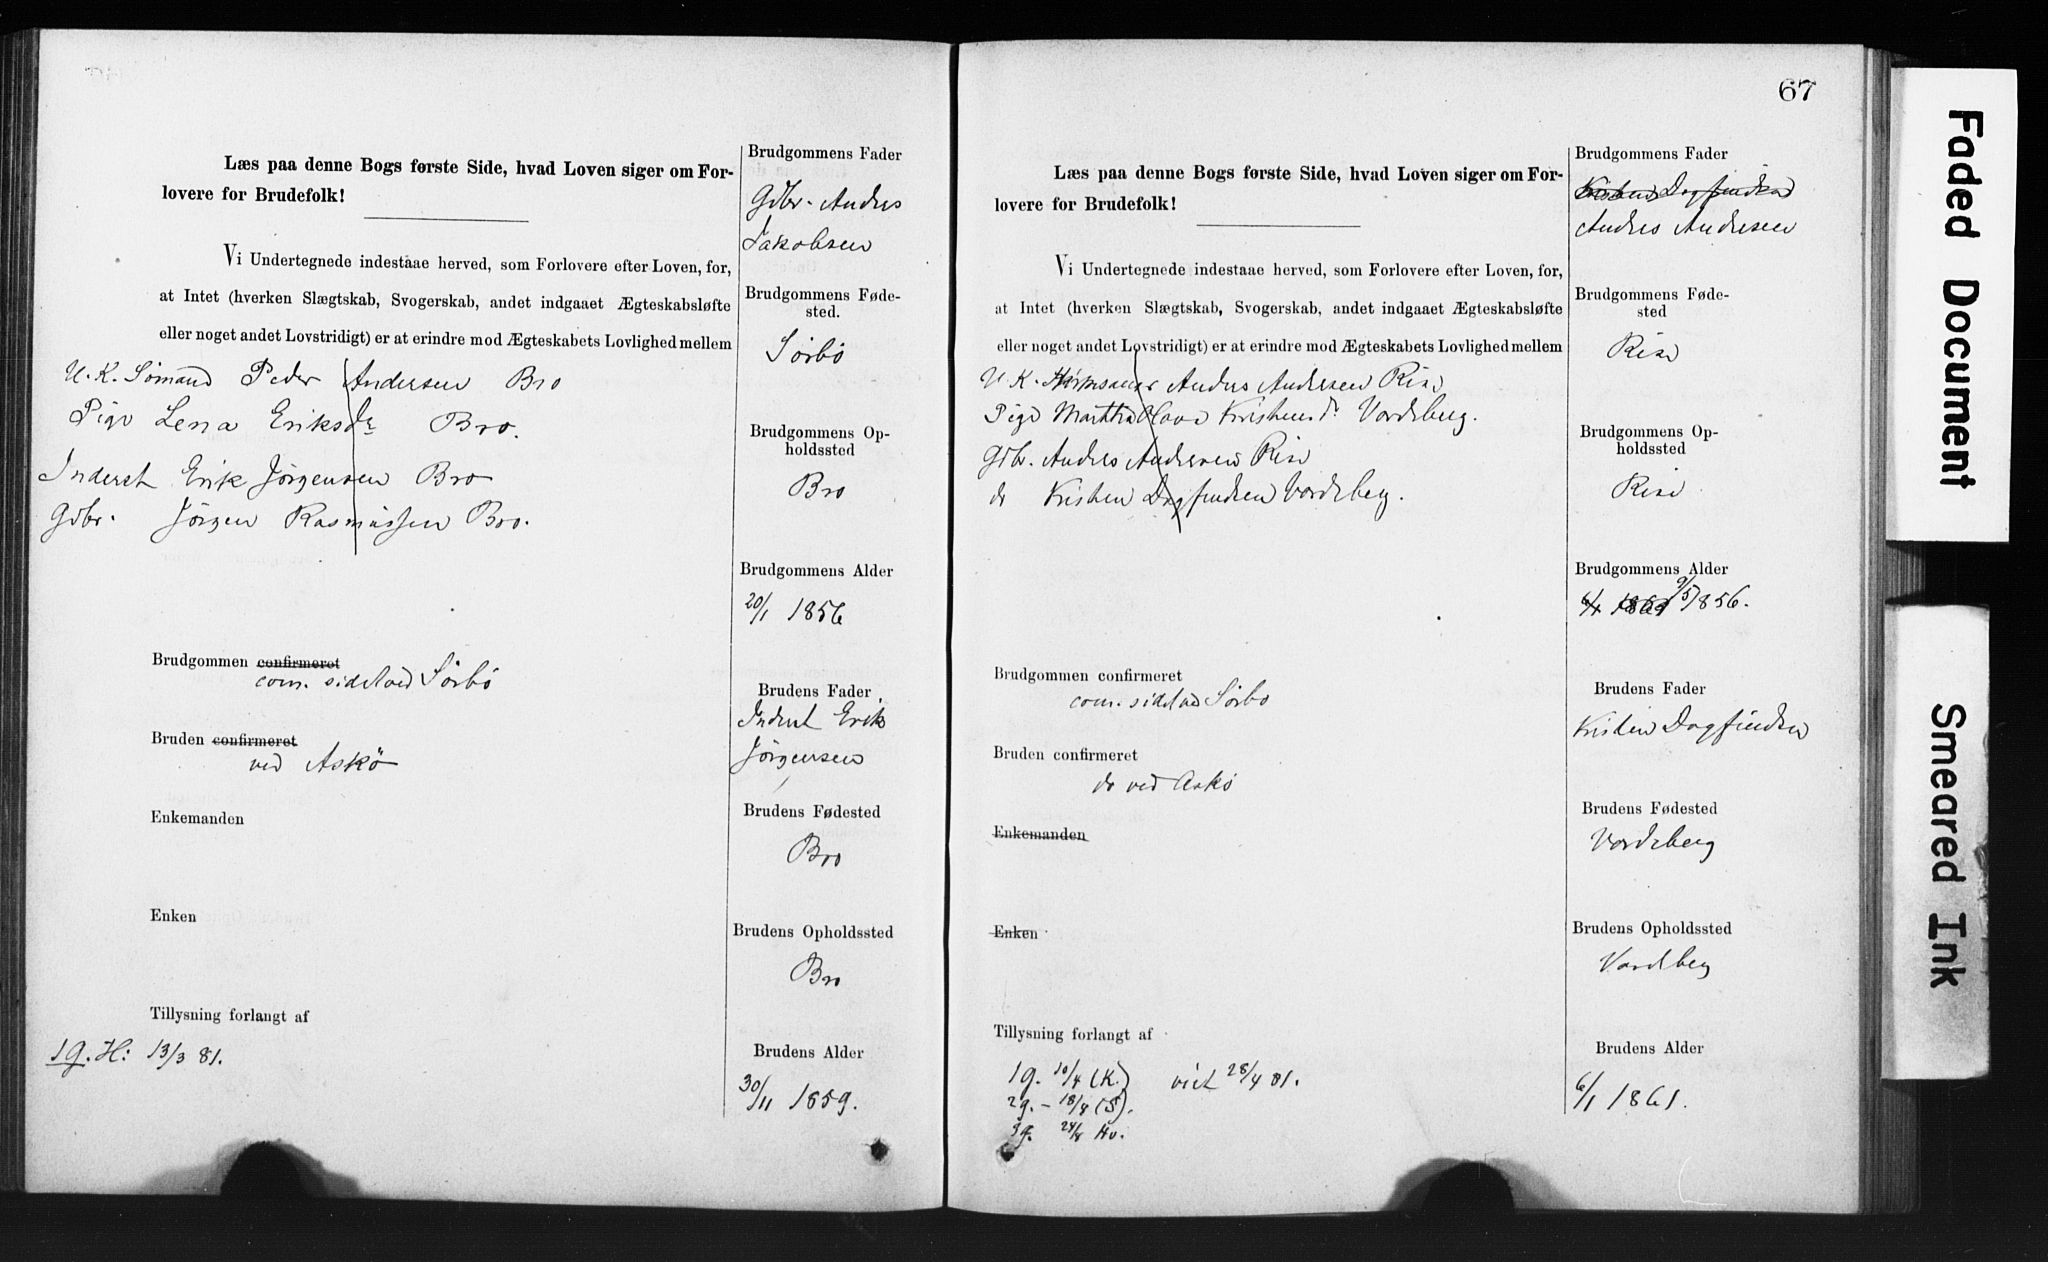 Læs paa denne Bogs første Side, hvad Loven siger om For-
lovere for Brudefolk!
Vi Undertegnede indestaae herved, som Forlovere efter Loven, for,
at Intet (hverken Slægtskab, Svogerskab, andet indgaaet Ægteskabsløfte
eller noget andet Lovstridigt) er at erindre mod Ægteskabets Lovlighed mellem
U. K. Sømand Peder Andersen Bro
Pige Lena Eriksdr Bro.
Inderst Erik Jørgensen Bro
Gdbr. Jørgen Rasmussen Bro.
Brudgommen confirmeret
com. sidst ved Sørbø
Bruden confirmeret
ved Askø
Enkemanden
Enken
Tillysning forlangt af
1 g. H: 13/3 81.
Brudgommens Fader
Gdbr. Anders
Jakobsen
Brudgommens Føde-
sted.
Sørbø
Brudgommens Op-
holdssted
Bro
Brudgommens Alder
20/1 1856
Brudens Fader
Inderst Erik
Jørgensen
Brudens Fødested
Bro
Brudens Opholdssted
Bro
Brudens Alder
30/11 1859.
67
Læs paa denne Bogs første Side, hvad Loven siger om For-
lovere for Brudefolk!
Vi Undertegnede indestaae herved, som Forlovere efter Loven, for,
at Intet (hverken Slægtskab, Svogerskab, andet indgaaet Ægteskabsløfte
eller noget andet Lovstridigt) er at erindre mod Ægteskabets Lovlighed mellem
U. K. Anders Andersen Rise
Pige Martha Olava Kristensdr Vardeberg.
Gdbr. Anders Andersen Rise
do Kristen Dagfindsen Vardeberg.
Brudgommen confirmeret
com. sidst ved Sørbø
Bruden confirmeret
do ved Askø
Enkemanden
Enken
Tillysning forlangt af
1 g. 10/4 (K.) viet 28/4 81.
2 g. – 18/4 (S).
3 g. 24/4 Hv.
Brudgommens Fader
Kristen Dagfindsen
Anders Andersen
Brudgommens Føde-
sted
Rise
Brudgommens Op-
holdssted
Rise
Brudgommens Alder
6/1 1861 9/5 1856.
Brudens Fader
Kristen Dagfindsen
Brudens Fødested
Vardeberg
Brudens Opholdssted
Vardeberg
Brudens Alder
6/1 1861.
Faded Document
Smeared Ink